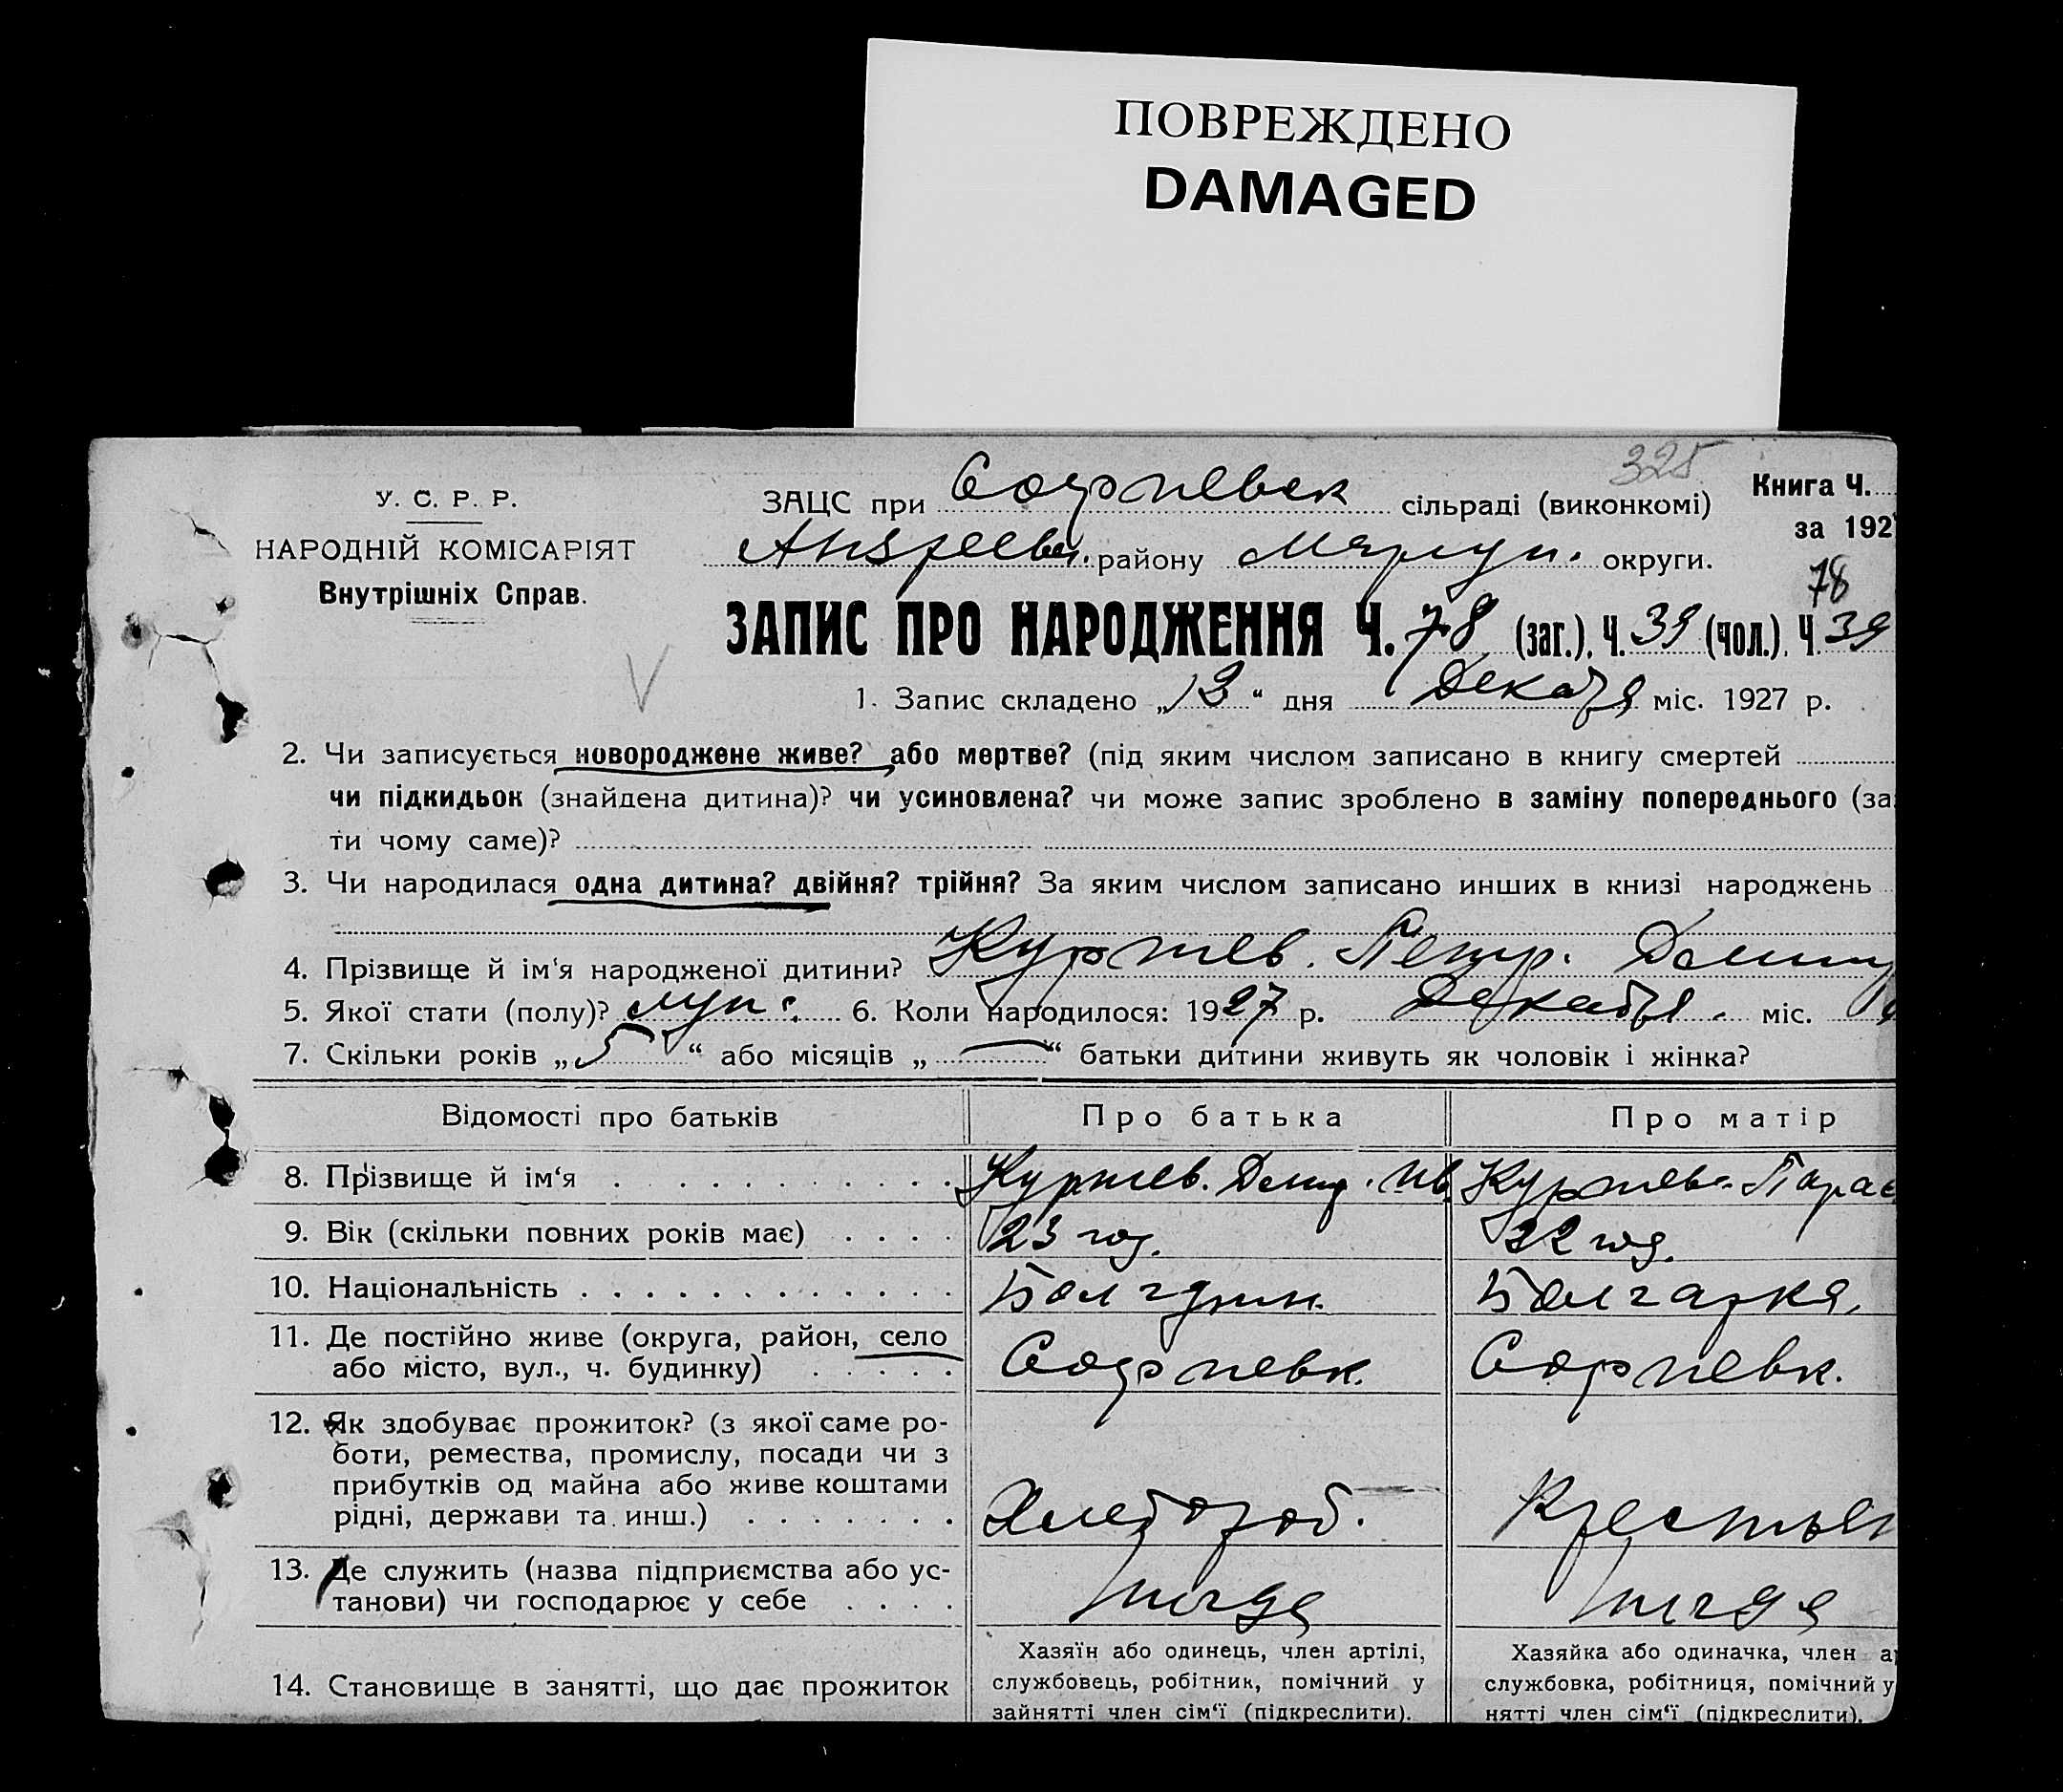 ПОВРЕЖДЕНО
DAMAGED
325
У. С. Р. Р.
НАРОДНІЙ КОМІСАРІЯТ
Внутрішніх Справ.
ЗАЦС при Софиевск сільраді (виконкомі)
Книга Ч.
за 192
Андреев. району Мариуп. округи.
78
ЗАПИС ПРО НАРОДЖЕННЯ Ч. 78 (заг.), Ч. 39 (чол.), Ч. 39
1. Запис складено „13“ дня Декабря міс. 1927 р.
2. Чи записується новороджене живе? або мертве? (під яким числом записано в книгу смертей
чи підкидьок (знайдена дитина)? чи усиновлена? чи може запис зроблено в заміну попереднього (за
ти чому саме)?
3. Чи народилася одна дитина? двійня? трійня? За яким числом записано инших в книзі народжень
4. Прізвище й ім‘я народженої дитини? Куртев. Петр.
5. Якої стати (полу)? муж. 6. Коли народилося: 1927 р. Декабря. міс.
7. Скільки років „5“ або місяців „—“ батьки дитини живуть як чоловік і жінка?
Відомості про батьків Про батька Про матір
8. Прізвище й ім‘я Куртев. Дмит. Ив Куртева Парас
9. Вік (скільки повних років має) 23 год. 22 год.
10. Національність Болгарин. Болгарка,
11. Де постійно живе (округа, район, село
або місто, вул., ч. будинку) Софиевк. Софиевк.
12. Як здобуває прожиток? (з якої саме ро-
боти, ремества, промислу, посади чи з
прибутків од майна або живе коштами
рідні, держави та инш.) Хлебороб. Крестьян
13. Де служить (назва підприємства або ус-
танови) чи господарює у себе нигде нигде
14. Становище в занятті, що дає прожиток
Хазяїн або одинець, член артілі,
службовець, робітник, помічний у
зайнятті член сім‘ї (підкреслити).
Хазяйка або одиначка, член а
службовка, робітниця, помічний у
нятті член сім‘ї (підкреслити).